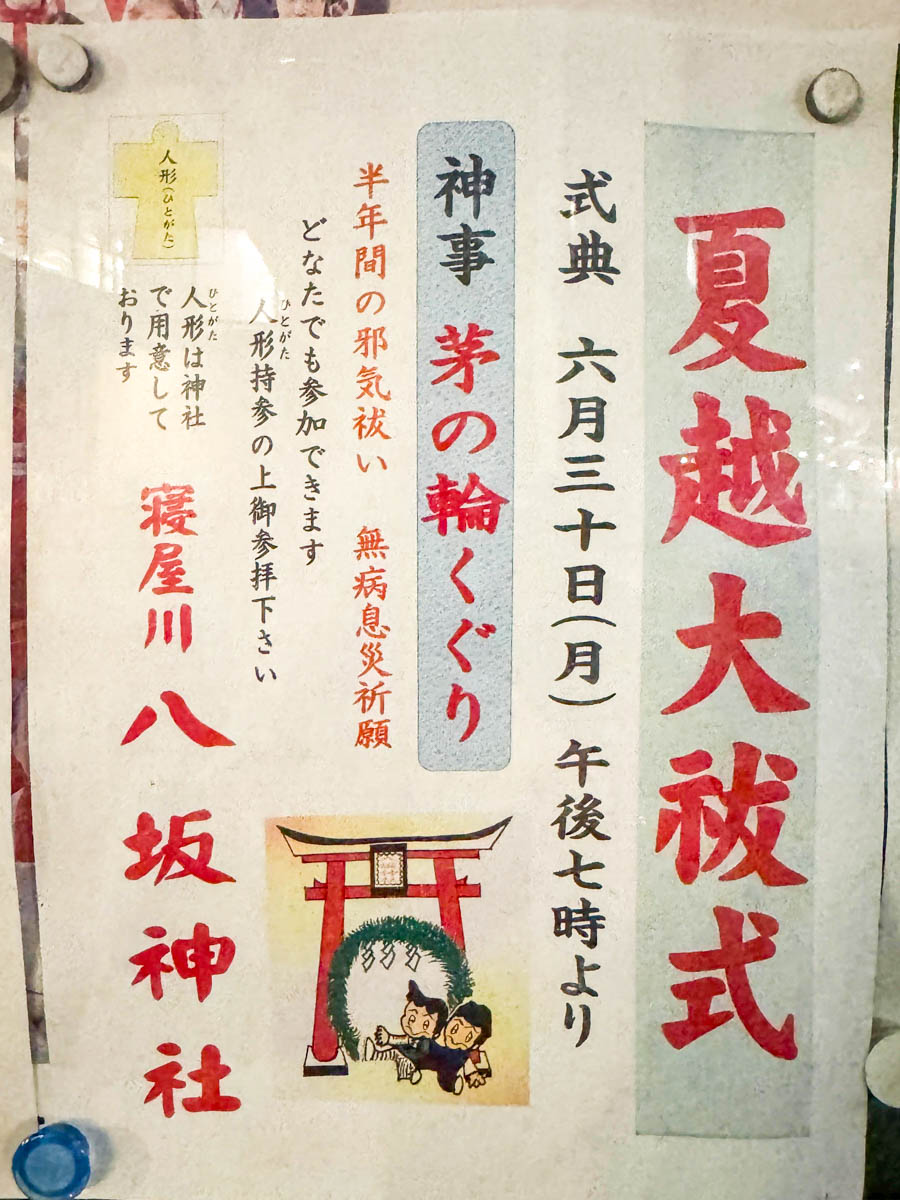 夏越大祓式
式典　六月三十日(月)　午後七時より
神事　茅の輪くぐり
半年間の邪気祓い　無病息災祈願
どなたでも参加できます
ひとがた
人形持参の上御参拝下さい
人形(ひとがた)
ひとがた
人形は神社
で用意して
おります
寝屋川　八坂神社